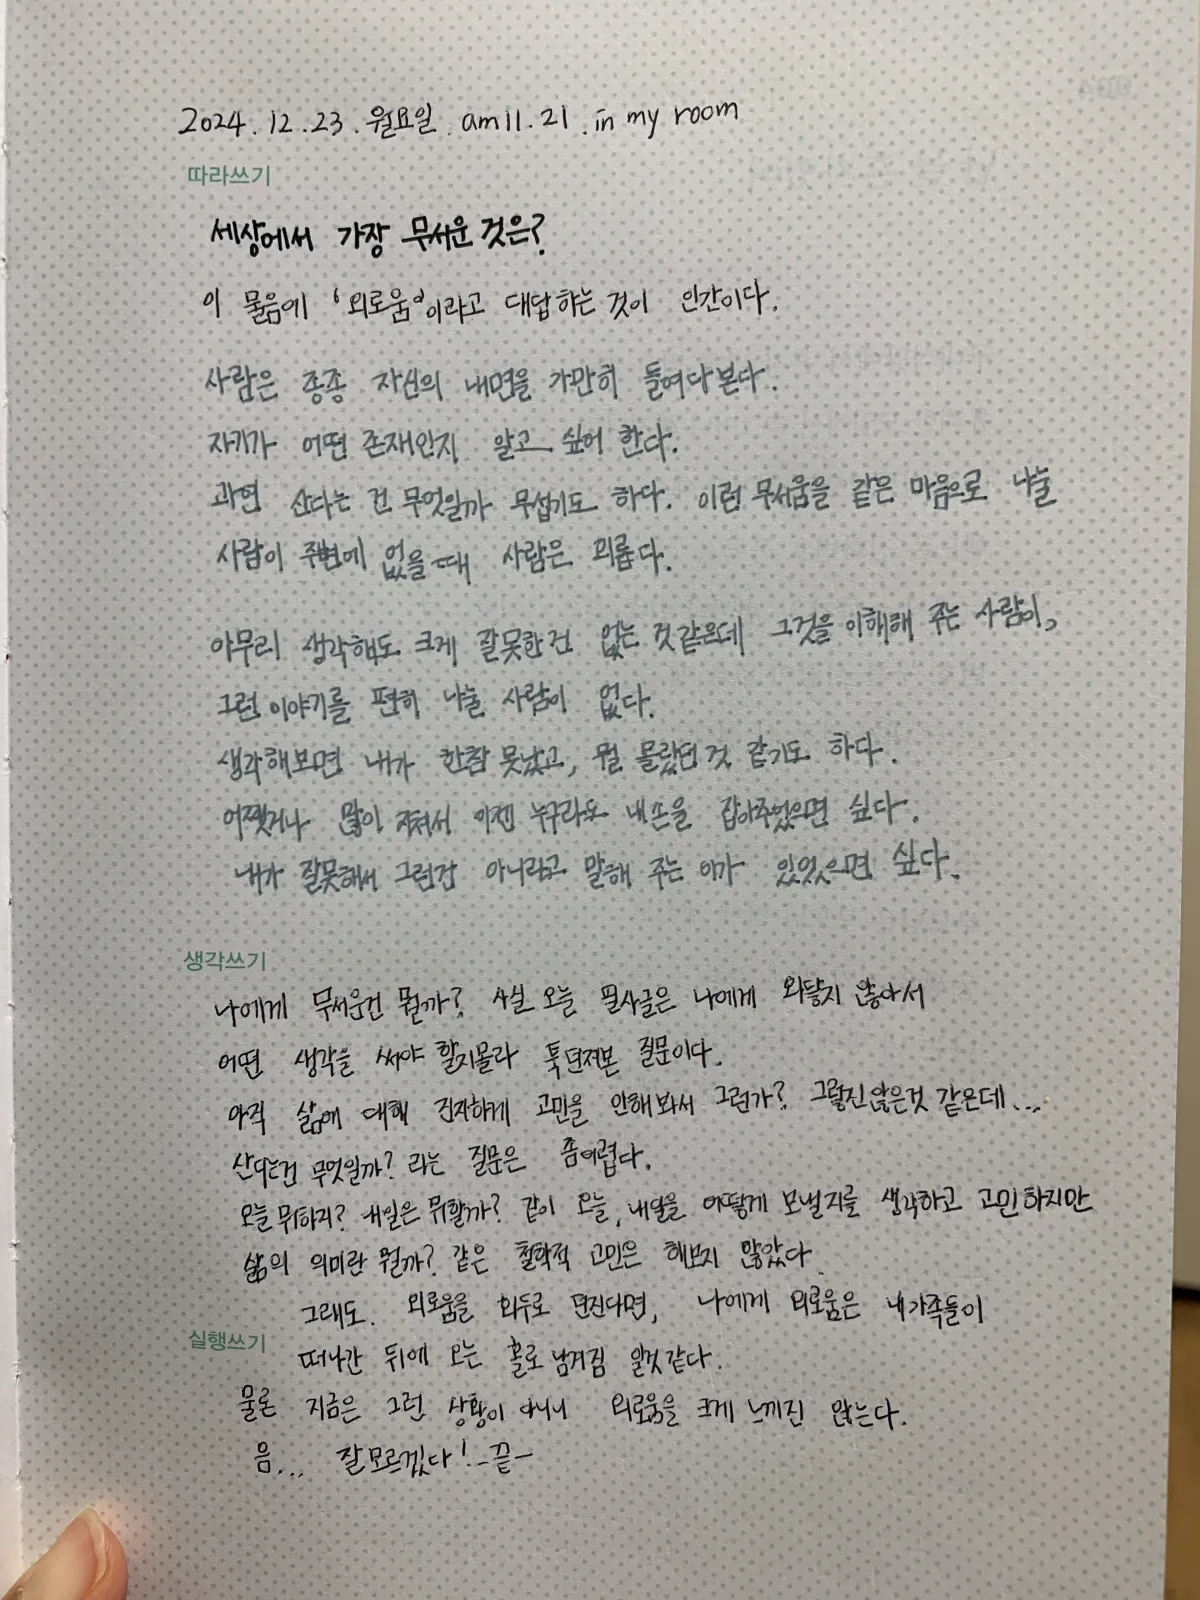 2024. 12. 23. 월요일. am 11. 21. in my room
따라쓰기
세상에서 가장 무서운 것은?
이 물음에 '외로움'이라고 대답하는 것이 인간이다.
사람은 종종 자신의 내면을 가만히 들여다본다.
자기가 어떤 존재인지 알고 싶어 한다.
과연 산다는 건 무엇일까 무섭기도 하다. 이런 무서움을 같은 마음으로 나눌
사람이 주변에 없을 때 사람은 괴롭다.
아무리 생각해도 크게 잘못한 건 없는 것 같은데 그것을 이해해 주는 사람이,
그런 이야기를 편히 나눌 사람이 없다.
생각해보면 내가 한참 못났고, 뭘 몰랐던 것 같기도 하다.
어쨌거나 많이 지쳐서 이젠 누구라도 내 손을 잡아주었으면 싶다.
내가 잘못해서 그런 건 아니라고 말해 주는 이가 있었으면 싶다.
생각쓰기
나에게 무서운건 뭘까? 사실 오늘 필사글은 나에게 와닿지 않아서
어떤 생각을 써야 할지몰라 툭 던져본 질문이다.
아직 삶에 대해 진지하게 고민을 안해봐서 그런가? 그렇진않은것 같은데...
산다는건 무엇일까? 라는 질문은 좀어렵다.
오늘 뭐하지? 내일은 뭐할까? 같이 오늘, 내일을 어떻게 보낼지를 생각하고 고민하지만
삶의 의미란 뭘까? 같은 철학적 고민은 해보지 않았다.
그래도. 외로움을 화두로 던진다면, 나에게 외로움은 내가족들이
실행쓰기
떠나간 뒤에 오는 홀로 남겨짐 일것같다.
물론 지금은 그런 상황이 아니니 외로움을 크게 느끼진 않는다.
음... 잘모르겠다! -끝-